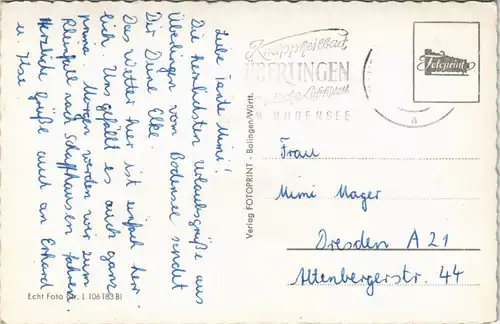 Liebe Tante Mimi!
Die herzlichsten Urlaubsgrüße aus
Überlingen vom Bodensee sendet
Dir Deine Elke.
Das Wetter hier ist einfach herr
lich. Uns gefällt es auch ganz
prima. Morgen werden wir zum
Rheinfall nach Schaffhausen fahren.
Herzliche Grüße auch an Erhard
u. Ilse
Echt Foto Nr. L 106 183 Bi
Verlag FOTOPRINT - Balingen/Württ.
Kneippheilbad
ÜBERLINGEN
AM BODENSEE
a
Fotoprint
Frau
Mimi Mager
Dresden A 21
Altenbergerstr. 44